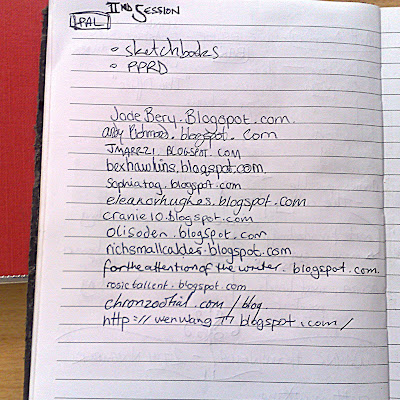 IIND SESSION
PAL
• sketchbooks
• PPRD
JadeBery.Blogspot.com.
.blogspot.com
JMARZZI.BLOGSPOT.COM
bexhawkins.blogspot.com.
sophiatag.blogspot.com
eleanorhughes.blogspot.com
cranie10.blogspot.com
olisoden.blogspot.com
richsmallcalder.blogspot.com
fortheattentionofthewriter.blogspot.com.
rosietallent.blogspot.com
.com/blog
http://wenwang77blogspot.com/